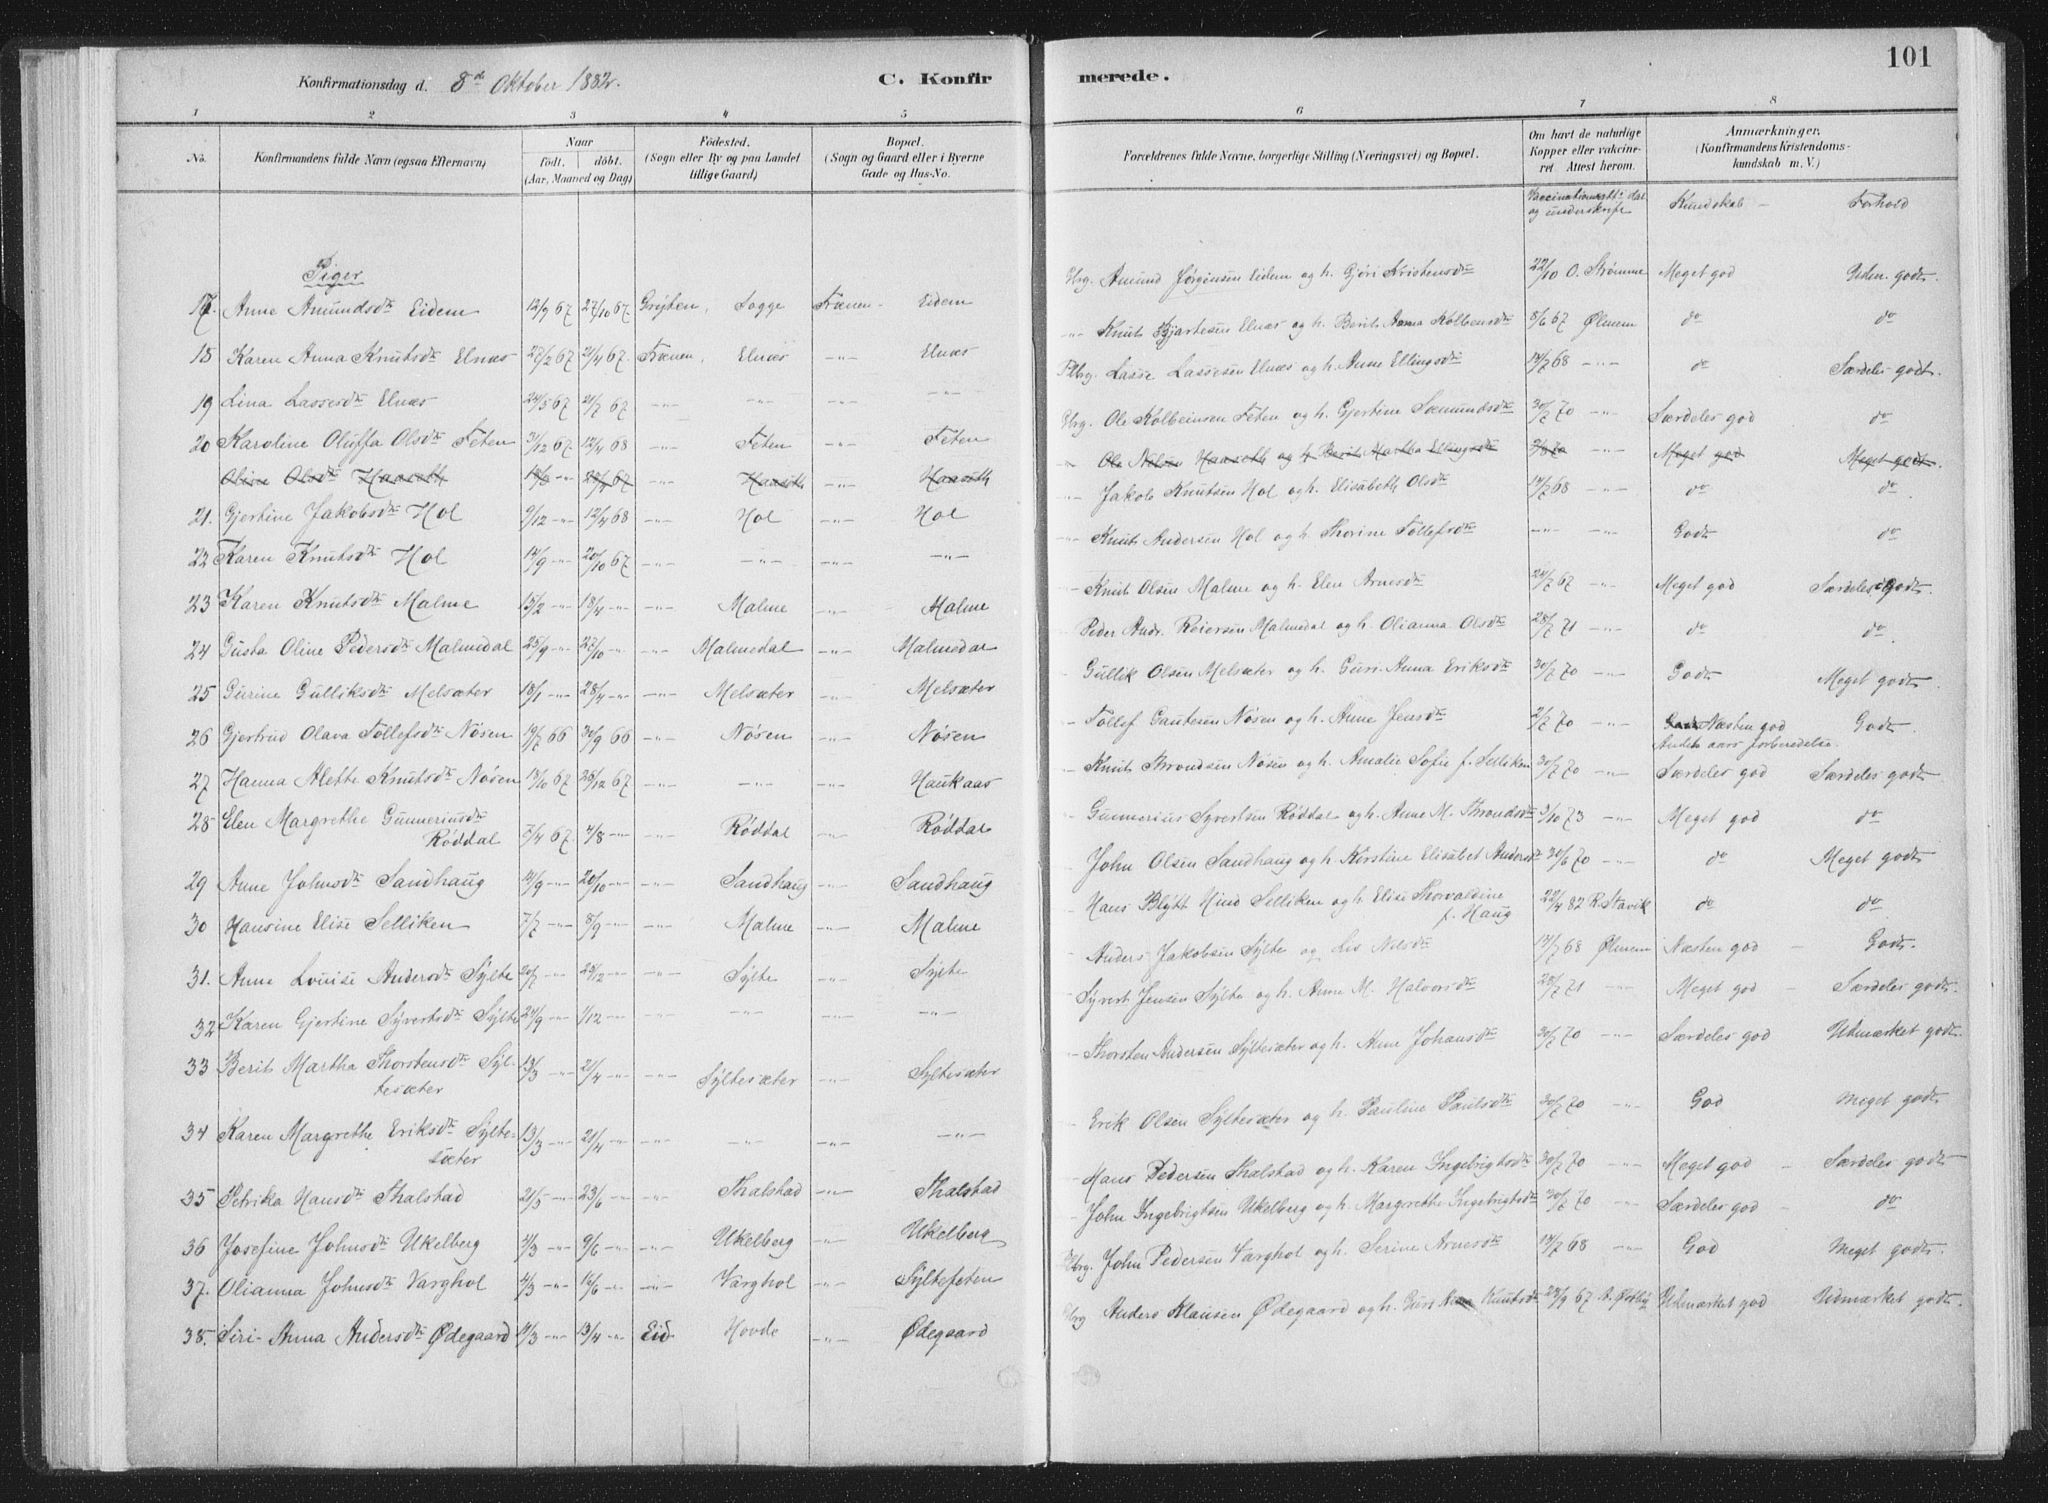 101
Konfirmationsdag d. 8de Oktober 1882. C. Konfirmerede.
1 2 3 4 5 6 7 8
No. Konfirmandens fulde Navn (ogsaa Efternavn) Naar født. døbt. (Aar, Maaned og Dag) Fødested. (Sogn eller By og paa Landet tillige Gaard) Bopæl. (Sogn og Gaard eller i Byerne Gade og Hus-No. Forældrenes fulde Navne, borgerlige Stilling (Næringsvei) og Bopæl. Om havt de naturlige Kopper eller vaccineret. Attest herom. Anmærkninger, (Konfirmandens Kristendomskundskab m. V.)
Vaccinationsatt. dat. og underskrift Kundskab - Forhold
Piger
17. Anne Amundsdtr Eidem 12/9 67 27/10 67 Grytten, Sogge Frænen - Eidem Gbrg. Amund Jørgensen Eidem og h. Gjøri Kristensdtr 22/10 O. Strømme Meget god Uden. godt
18 Karen Anna Knutsdtr Elnæs 27/2 67 21/4 67. Frænen, Elnæs -"- Elnæs -"- Knut Bjartesen Elnæs og h. Berit Anna Kolbensdtr 8/6 67 Ølmem do do
19 Lina Lassesdtr Elnæs 24/5 67 21/7 67 -"- -"- -"- -"- Lasse Lassesen Elnæs og h. Anne Ellingsdtr 14/7 68 -"- do Særdeles godt.
20 Karoline Oluffa Olsdtr Feten 31/12 67 12/4 68 -"- Feten -"- Feten Gbrg. Ole Kolbeinsen Feten og h. Gjertine Sæmundsdtr 30/7 70 -"- Særdeles god do
Oline Olsdtr Haaseth -"- Haaseth -"- Haaseth Ole Nilsen Haaseth og h Berit Martha Ellingsdtr -"- Meget god Meget godt.
21. Gjertine Jakobsdtr Hol 9/12 -"- 12/4 68 -"- Hol -"- Hol -"- Jakob Knutsen Hol og h. Elisabeth Olsdtr 14/7 68 -"- do do
22 Karen Knutsdtr Hol 14/9 -"- 20/10 67 -"- -"- -"- -"- -"- Knut Andersen Hol og h. Thorine Tollefsdtr -"- -"- Godt do
23 Karen Knutsdtr Malme 15/2 -"- 18/4 -"- -"- Malme -"- Malme - Knut Olsen Malme og h. Elen Arnesdtr 24/7 67 -"- Meget god Særdeles godt.
24 Gusta Oline Pedersdtr Malmedal 25/9 -"- 27/10 -"- -"- Malmedal -"- Malmedal - Peder Andr. Reiersen Malmedal og h. Olianna Olsdtr 28/7 71 -"- do do
25 Gurine Gulliksdtr Melsæter 18/1 -"- 28/4 -"- -"- Melsæter -"- Melsæter - Gullik Olsen Melsæter og h. Guri Anna Eriksdtr 30/7 70 -"- Godt Meget godt.
26 Gjertrud Olava Tollefsdtr Nøsen 19/7 66 30/9 66 -"- Nøsen -"- Nøsen - Tollef Gautesen Nøsen og h. Anne Jensdtr 2/7 70 -"- Næsten god Godt.
Andet aars forberedelse.
27 Hanna Alette Knutsdtr Nøsen 13/10 67 26/12 67 -"- -"- -"- Haukaas - Knut Throndsen Nøsen og h. Amalie Sofie f. Selliken 30/7 70 -"- Særdeles god Særdeles godt
28 Elen Margrethe Gunneriusdtr
Røddal 7/4 67 4/8 -"- -"- Røddal -"- Røddal - Gunnerius Syvertsen Røddal og h. Anne M. Throndsdtr 3/10 73 -"- Meget god do
29 Anne Johnsdtr Sandhaug 14/9 -"- 20/10 -"- -"- Sandhaug -"- Sandhaug - John Olsen Sandhaug og h. Kirstine Elisabet Andersdtr 30/6 70 -"- do Meget godt
30 Hansine Elise Selliken 7/7 -"- 8/9 -"- -"- Malme -"- Malme - Hans Blytt Hind Selliken og h. Elise Thorvaldine
f. Haug 22/4 82 R. Stavik do do
31. Anne Louise Andersdtr Sylte 20/7 -"- 29/12 -"- -"- Sylte -"- Sylte - Anders Jakobsen Sylte og Lis Nilsdtr 14/7 68 Ølmem Næsten god - Godt.
32 Karen Gjertine Syvertsdtr Sylte 24/9 -"- 1/12 -"- -"- -"- -"- -"- - Syvert Jensen Sylte og h. Anne M. Halvorsdtr 28/7 71 -"- Meget god - Særdeles godt.
33 Berit Martha Thorstensdtr Syl-
tesæter 13/3 -"- 21/4 -"- -"- Syltesæter -"- Syltesæter - Thorsten Andersen Syltesæter og h. Anne Johansdtr 30/7 70 -"- Særdeles god Udmærket godt.
34 Karen Margrethe Eriksdtr Sylte-
sæter 13/3 -"- 21/4 -"- -"- -"- -"- -"- - Erik Olsen Syltesæter og h. Pauline Paulsdtr 30/7 70 -"- God Meget godt.
35 Petrika Hansdtr Thalstad 21/5 -"- 23/6 -"- -"- Thalstad -"- Thalstad - Hans Pedersen Thalstad og h. Karen Ingebrigtsdtr 30/7 70 -"- Meget god - Særdeles godt
36 Josefine Johnsdtr Ukelberg 4/3 -"- 9/6 -"- -"- Ukelberg -"- Ukelberg - John Ingebrigtsen Ukelberg og h. Margrethe Ingebrigtsdtr 30/7 70 -"- Særdeles god - do
37. Olianna Johnsdtr Varghol 4/3 -"- 16/6 -"- -"- Varghol -"- Syltefeten John Pedersen Varghol og h. Serine Arnesdtr 14/7 68 -"- God - Meget godt.
38. Siri Anna Andersdtr Ødegaard 4/3 -"- 13/4 -"- Eid Hovde -"- Ødegaard Gbrg Anders Klausen Ødegaard og h. Guri Knutsdtr 24/9 67 Udmærket god Udmærket godt.